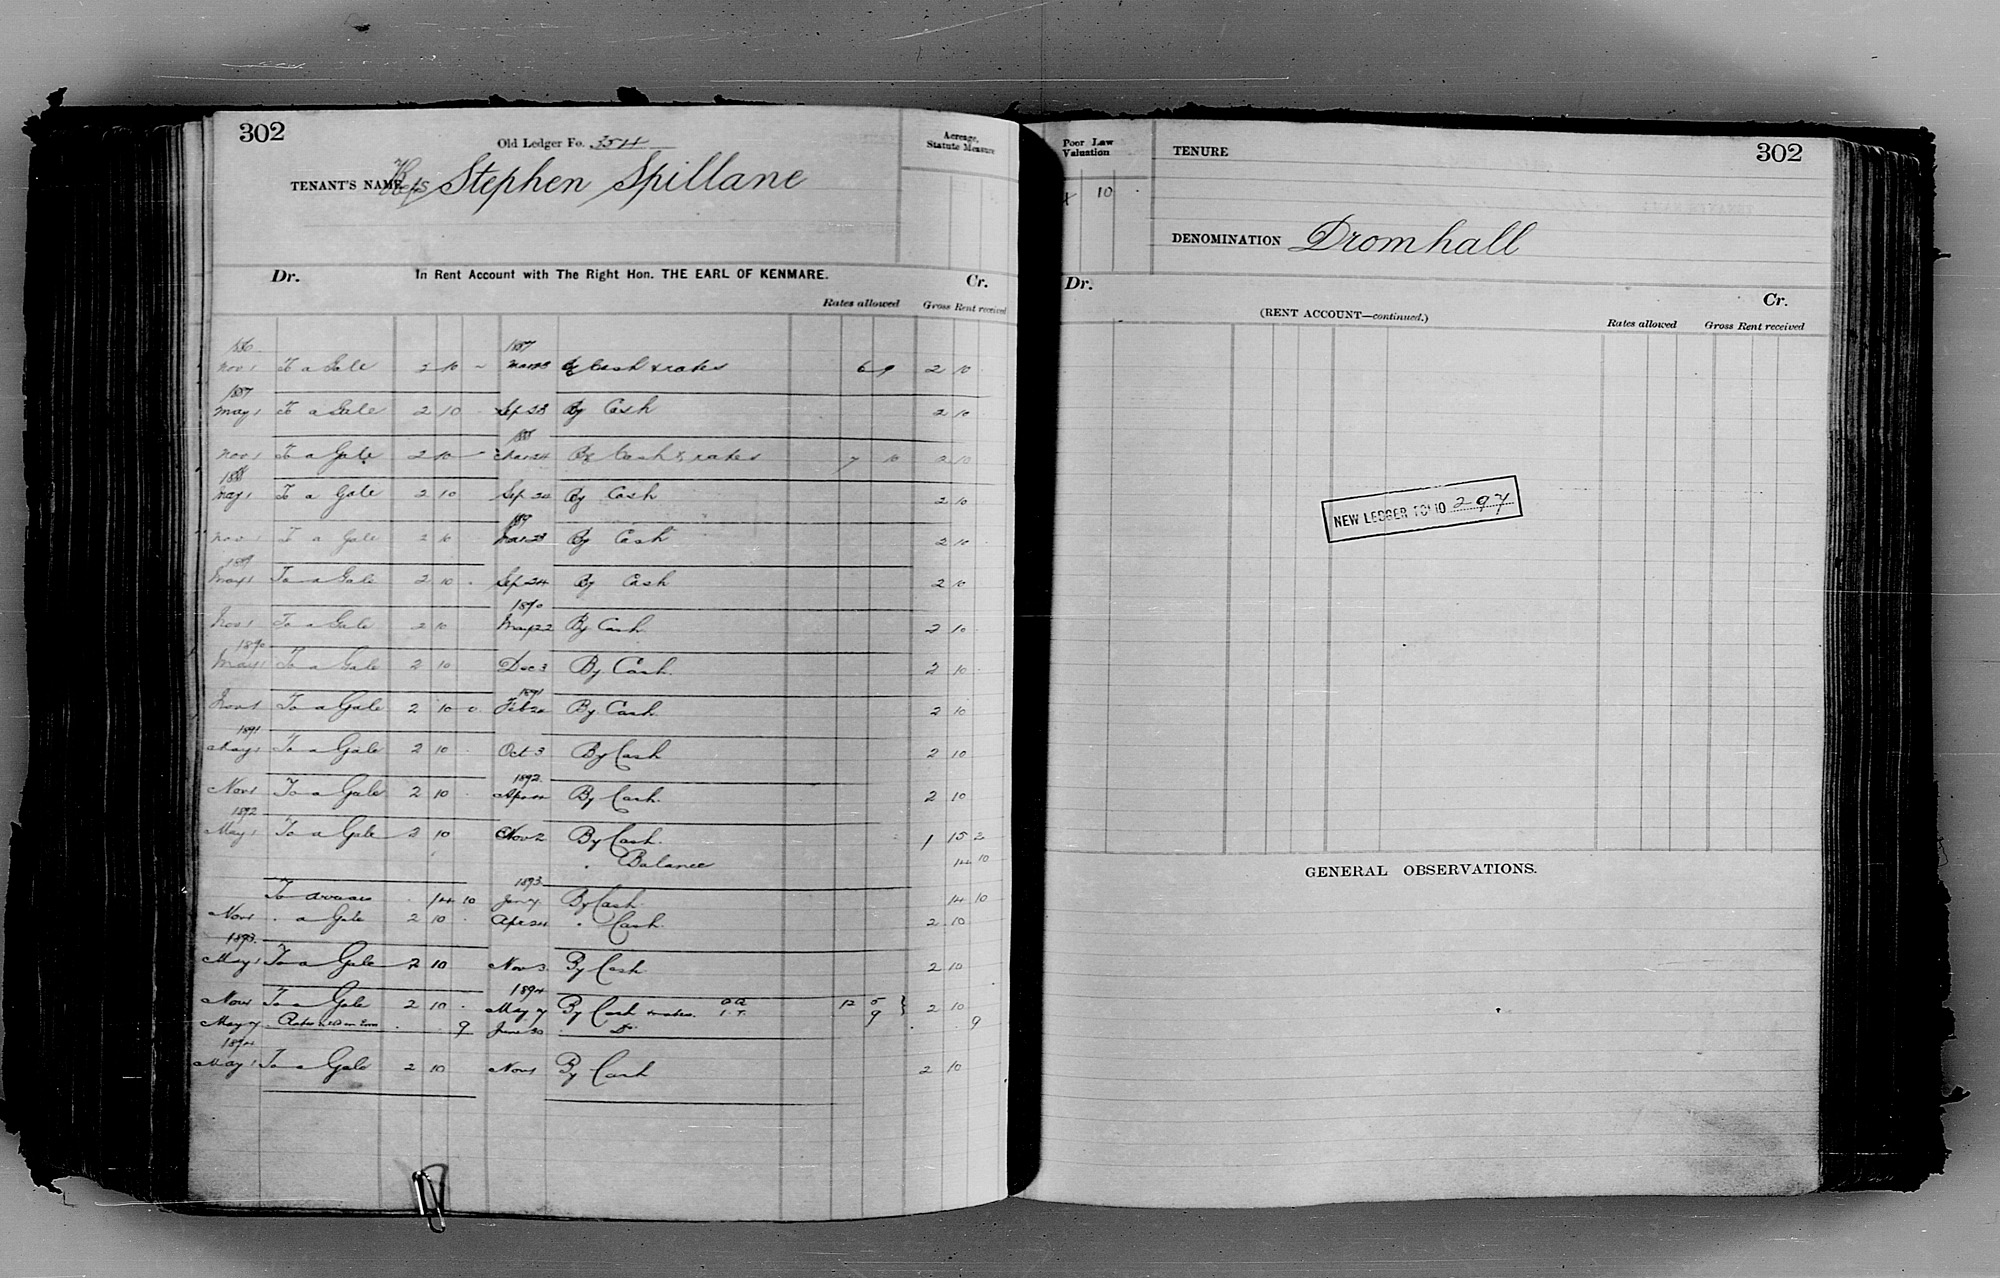 302
Old Ledger Fo. 354
TENANT'S NAME Reps Stephen Spillane
Acreage, Statute Measure
Dr. In Rent Account with The Right Hon. THE EARL OF KENMARE. Cr.
Rates allowed Gross Rent received
1886 1887
Nov 1 To a Gale 2 10 - Mar 23 By Cash & rates 6 9 2 10
1887
May 1 To a Gale 2 10 Sep 28 By Cash 2 10
1888
Nov 1 To a Gale 2 10 Mar 24 By Cash & rates 7 10 2 10
1888
May 1 To a Gale 2 10 Sep 24 By Cash 2 10
1889
Nov 1 To a Gale 2 10 Mar 23 By Cash 2 10
1889
May 1 To a Gale 2 10 Sep 24 By Cash 2 10
1890
Nov 1 To a Gale 2 10 May 22 By Cash 2 10
1890
May 1 To a Gale 2 10 Dec 3 By Cash. 2 10
1891
Nov 1 To a Gale 2 10 0 Feb By Cash 2 10
1891
May 1 To a Gale 2 10 Oct 3 By Cash 2 10
1892
Nov 1 To a Gale 2 10 Apr By Cash. 2 10
1892
May 1 To a Gale 2 10 Nov 2 By Cash. 1 15 2
" Balance 14 10
1893
To arrears 14 10 Jan 7 By Cash. 14 10
Nov 1 " a Gale 2 10 Apr 24 " Cash. 2 10
1893
May 1 To a Gale 2 10 Nov 3 By Cash 2 10
1894
Nov 1 To a Gale 2 10 May 7 By Cash & rates. 12 5 } 2 10
May 7 Rates 9 June 30 " Do 9 9
1894
May 1 To a Gale 2 10 Nov 1 By Cash 2 10
Poor Law Valuation
10
TENURE
302
DENOMINATION Dromhall
Dr. Cr.
(RENT ACCOUNT—continued.)
Rates allowed Gross Rent received
NEW LEDGER FOLIO 297
GENERAL OBSERVATIONS.